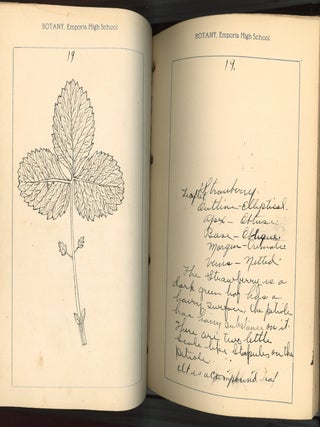 BOTANY, Emporia High School
19
BOTANY, Emporia High School
19.
Strawberry.
Leaflet Outline - Elliptical.
Apex - Obtuse.
Base - Oblique.
Margin - Crenate
Veins - Netted.
The Strawberry is a
dark green has a
hairy surface, the petiole
has hairy substance on it.
There are two little
scale-like Stipules on the
Petiole.
It is a Compound leaf